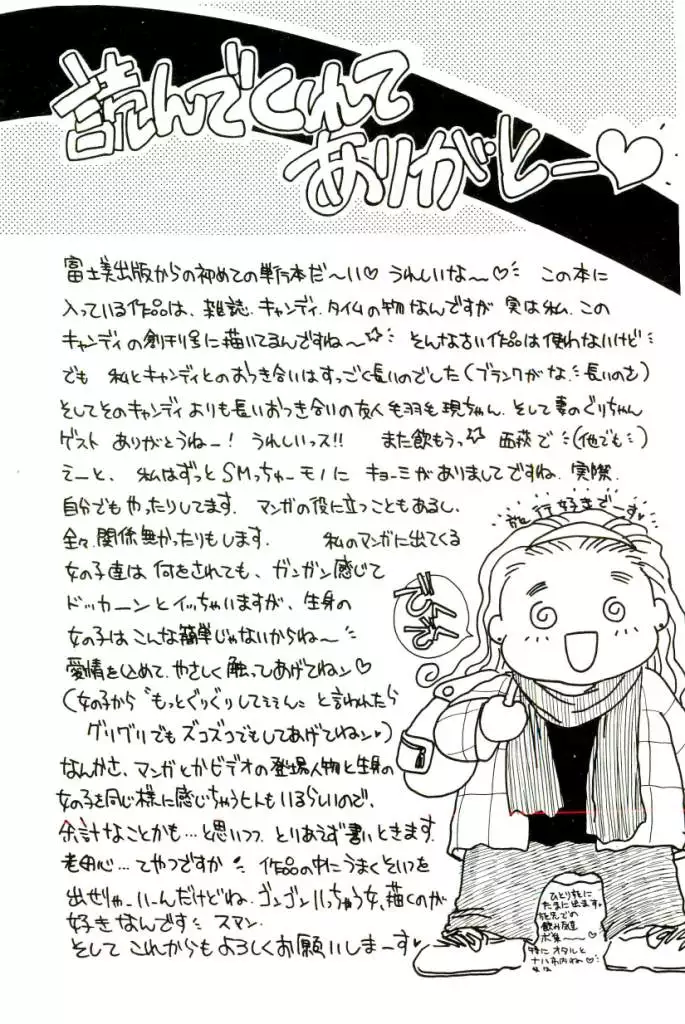 読んでくれて
ありがとー♡
富士美出版からの初めての単行本だ〜い♡ うれしいな〜♡ この本に
入っている作品は、雑誌.キャンディ.タイムの物なんですが 実は私.この
キャンディの創刊号に描いてるんですね〜☆ そんな古い作品は使わないけど
でも 私とキャンディとのおつき合いはすっごく長いのでした(ブランクがな.長いのさ)
そしてそのキャンディよりも長いおつき合いの友人 毛羽毛現ちゃん.そして妻のぐりちゃん
ゲスト ありがとうねー! うれしいっス!! また飲もうっ☆ 西荻で(他でも)
えーと、私はずっとSMっちゅーモノに キョーミがありましてですね.実際.
自分でもやったりしてます. マンガの役に立つこともあるし.
全々.関係無かったりもします. 私のマンガに出てくる
女の子達は 何をされても、ガンガン感じて
ドッカーンとイッちゃいますが、生身の
女の子は こんな簡単じゃないからね〜
愛情を込めて.やさしく触ってあげてねン♡
(女の子から〝もっとぐりぐりしてぇぇん〟と言われたら
グリグリでもズコズコでもしてあげてねン♡)
なんかさ、マンガとかビデオの登場人物と生身の
女の子を同じ様に感じちゃうヒトもいるらしいので、
余計なことかも…と思いつつ とりあえず書いときます.
老婆心…てやつですか 作品の中にうまくそいつを
出せりゃーいーんだけどね.ゴンゴンいっちゃう女、描くのが
好きなんです スマン.
そして これからも よろしくお願いしまーす♥
旅行好きでーす♥
ひとり旅に
たまに出ます。
旅先での
飲み友達
ボ集〜〜♡
特に オタルと
ナハ市内ね♡